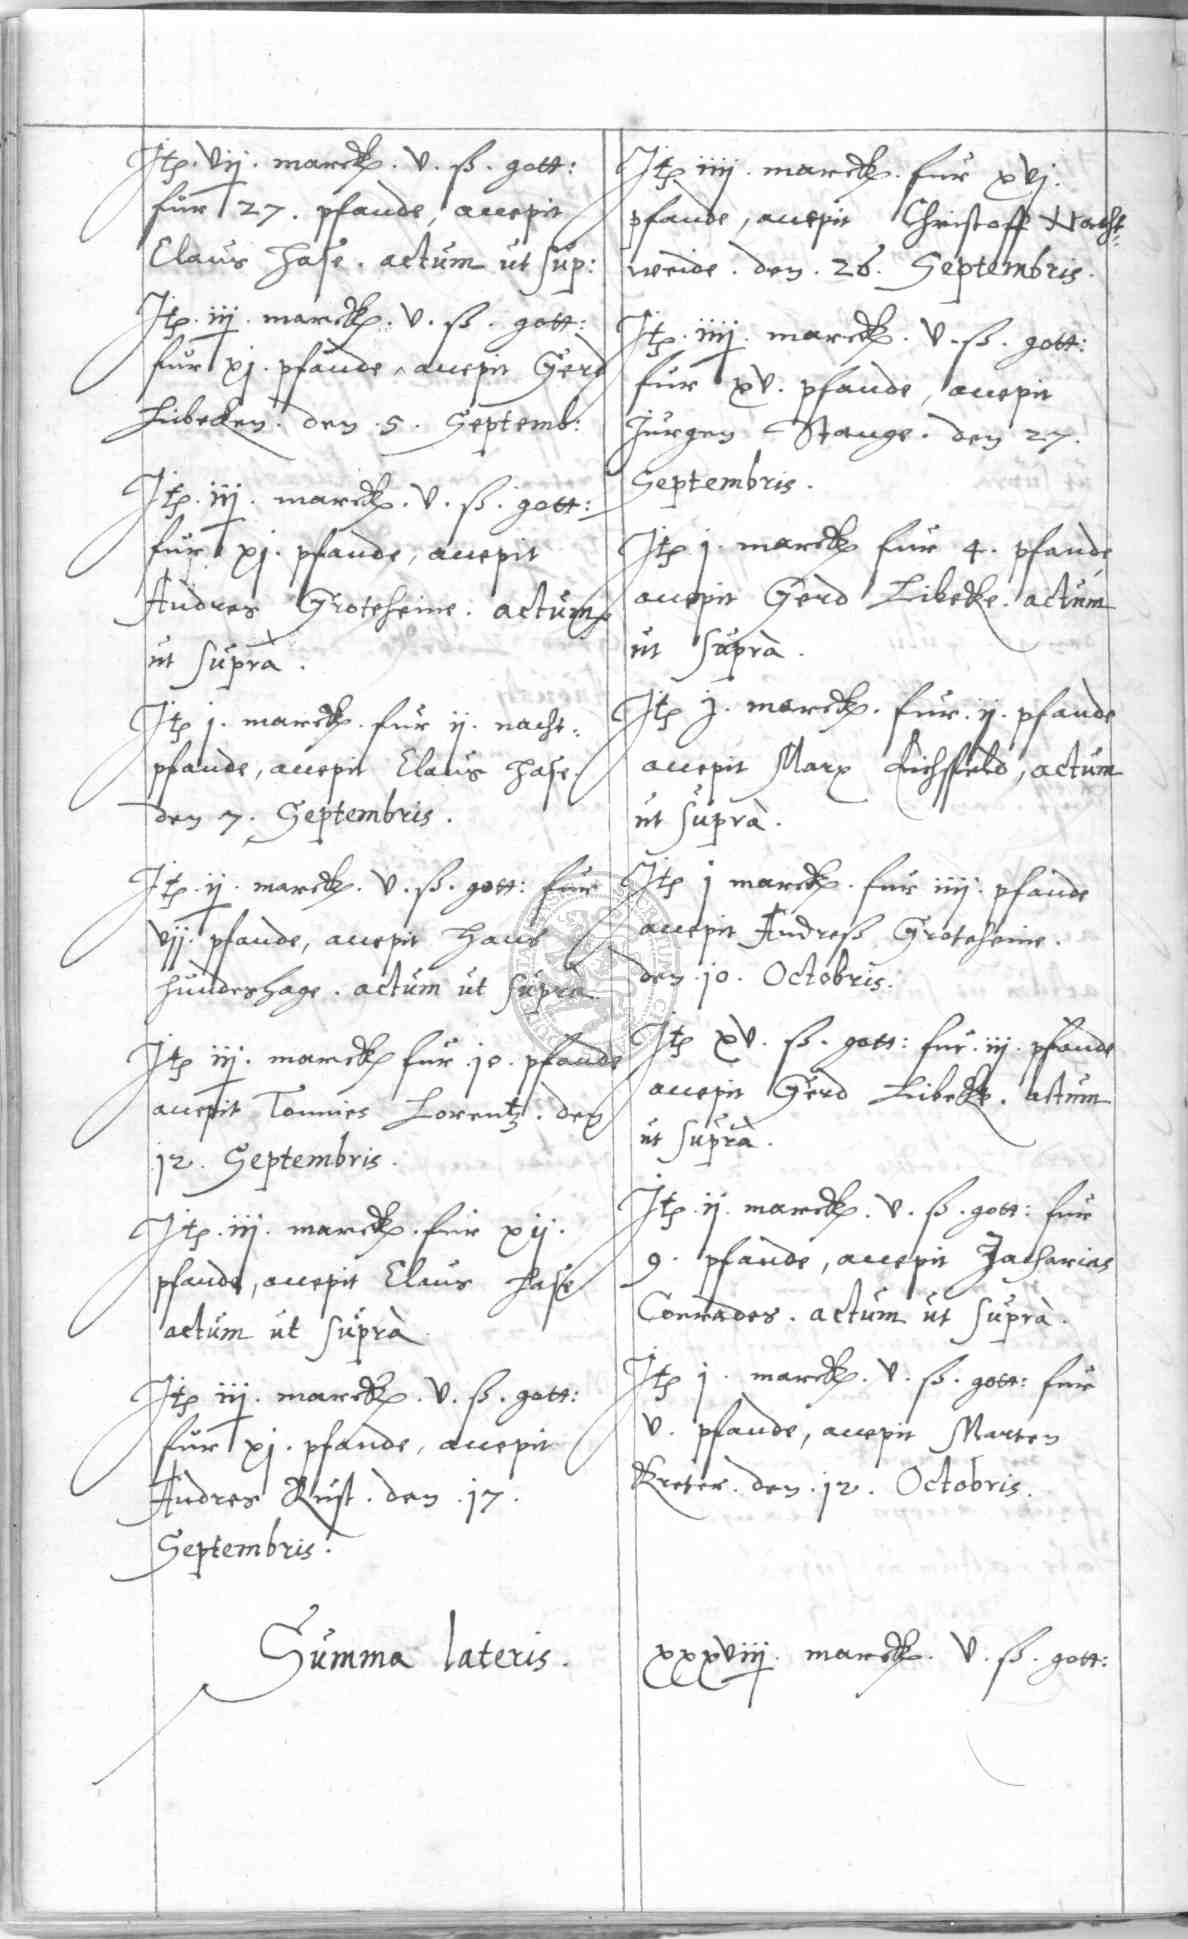 Itp. vij. marck. v. ß. gott:
für 27. pfande, accepit
Claus Hase. actum ut sup:
Itp. iij. marck. v. ß. gott:
für xj. pfande, accepit Gerd
Libecken. den 5. Septemb:
Itp. iij. marck. v. ß. gott:
für xj. pfande, accepit
Andres Groteheine. actum
ut suprà.
Itp j. marck. für ij. nacht-
pfande, accepit Claus Hase.
den 7. Septembris.
Itp. ij. marck. v. ß. gott: für
vij. pfande, accepit Hans
Hundeshage. actum ut suprà
Itp iij. marck für .10. pfande
accepit Tonnies Lorentz. den
12. Septembris.
Itp. iij. marck. für xij.
pfande, accepit Claus Hase
actum ut suprà
Itp iij. marck. v. ß. gott:
für xj. pfande, accepit
Andres Rust. den .17.
Septembris.
Summa lateris.
Itp iiij. marck. für xvj.
pfande, accepit Christoff Wacht-
weide. den .26. Septembris.
Itp. iiij. marck. v. ß. gott:
für xv. pfande, accepit
Jürgen Stange. den 27.
Septembris.
Itp j. marck für 4. pfande
accepit Gerd Libecke. actum
ut suprà.
Itp j. marck. für. ij. pfande
accepit Marx Eichsfeld, actum
ut suprà.
Itp j marck. für iiij. pfande
accepit Andreß Groteheine.
den .10. Octobris.
Itp xv. ß. gott: für. iij. pfande
accepit Gerd Libecke. actum
ut suprà.
Itp. ij. marck. v. ß. gott: für
9. pfande, accepit Zacharias
Conrades. actum ut suprà.
Itp j. marck. v. ß. gott: für
v. pfande, accepit Marten
Kreter. den .12. Octobris.
xxxviij. marck. v. ß. gott: